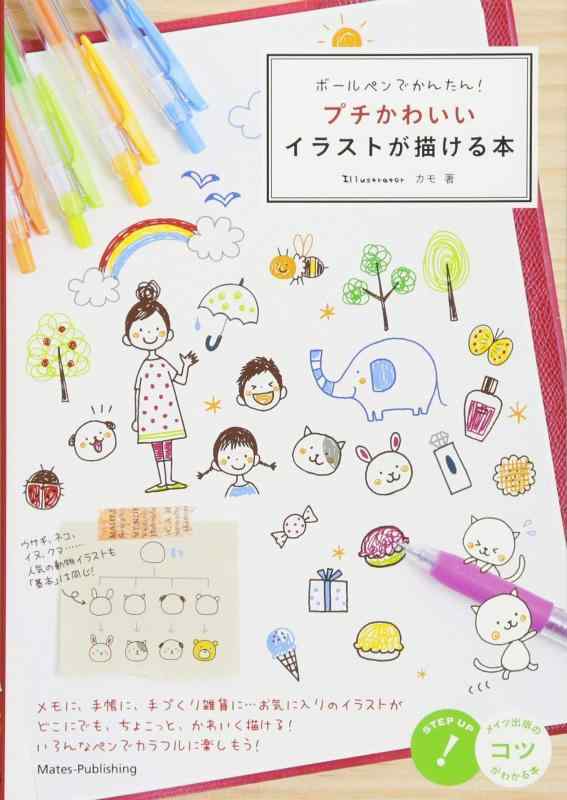 ボールペンでかんたん!
プチかわいい
イラストが描ける本
Illustrator カモ 著
ウサギ、ネコ、
イヌ、クマ……
人気の動物イラストも
「基本」は同じ!
メモに、手帳に、手づくり雑貨に…お気に入りのイラストが
どこにでも、ちょこっと、かわいく描ける!
いろんなペンでカラフルに楽しもう!
Mates-Publishing
STEP UP
!
メイツ出版の
コツ
がわかる本